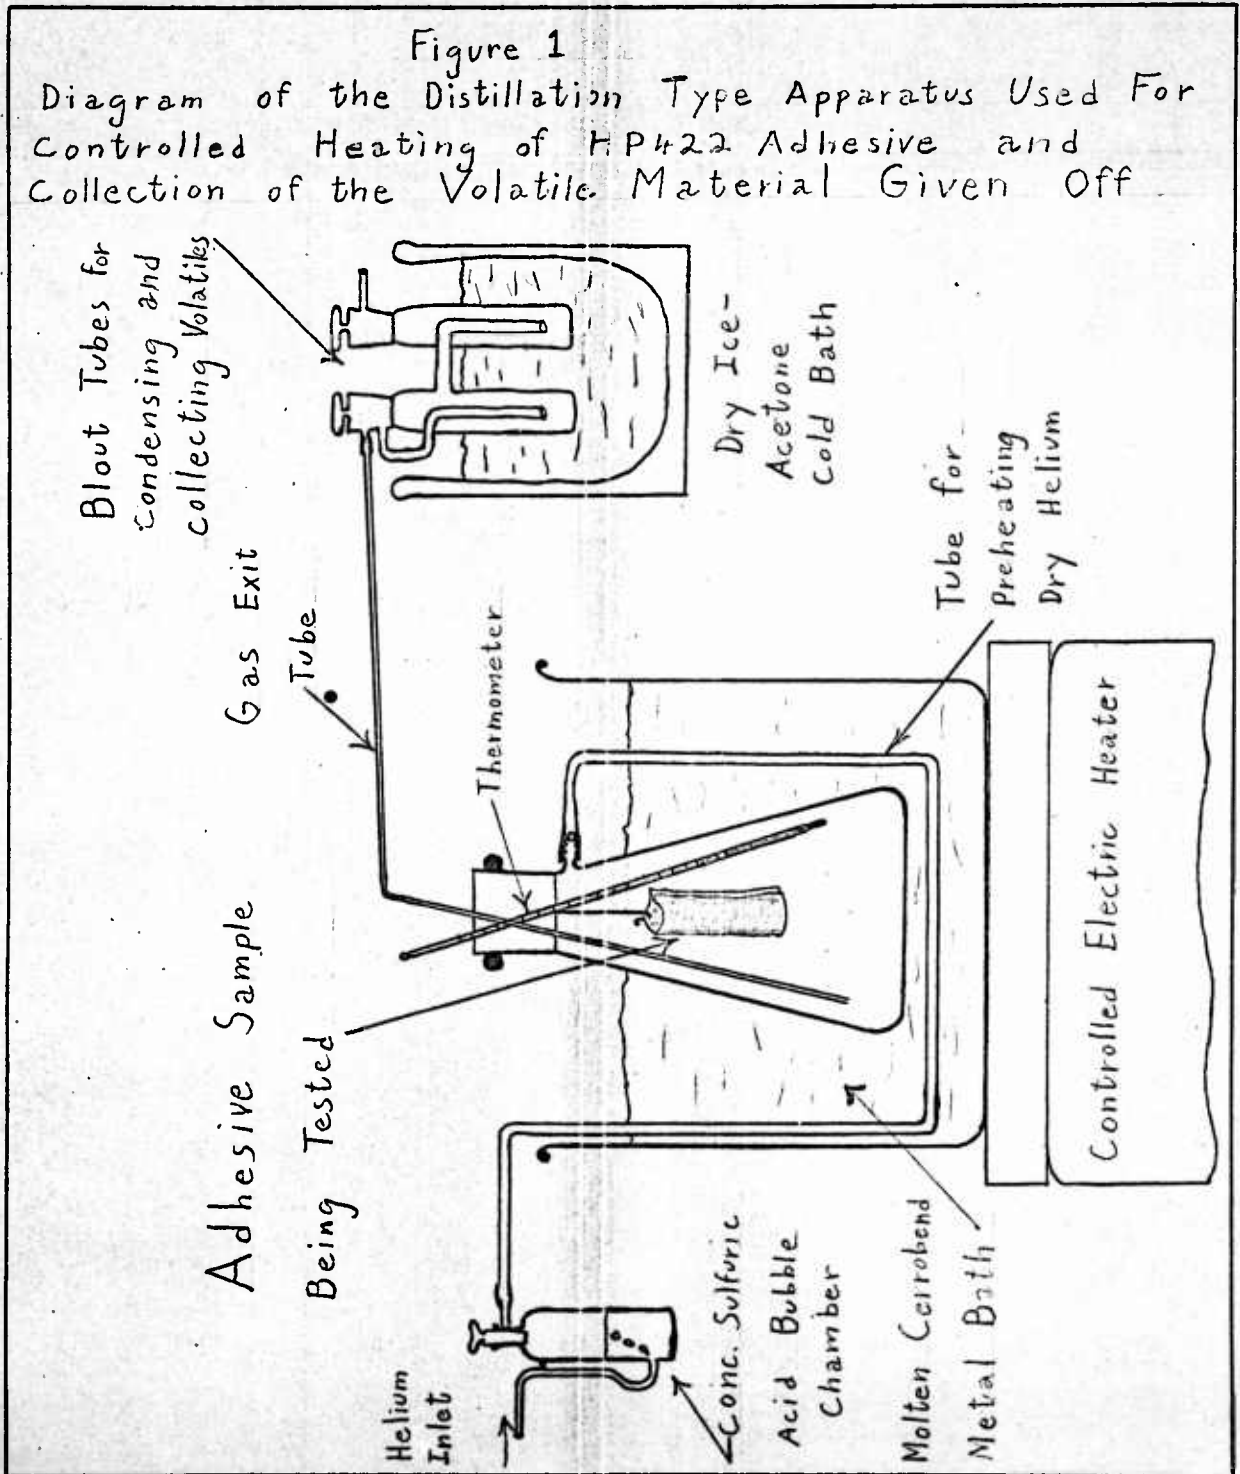 Figure 1
Diagram of the Distillation Type Apparatus Used For
Controlled Heating of HP422 Adhesive and
Collection of the Volatile Material Given Off
Blout Tubes for
Condensing and
collecting Volatiles
Dry Ice-
Acetone
Cold Bath
Gas Exit
Tube
Thermometer
Tube for
Preheating
Dry Helium
Adhesive Sample
Being Tested
Controlled Electric Heater
Helium
Inlet
Conc. Sulfuric
Acid Bubble
Chamber
Molten Cerrobend
Metal Bath